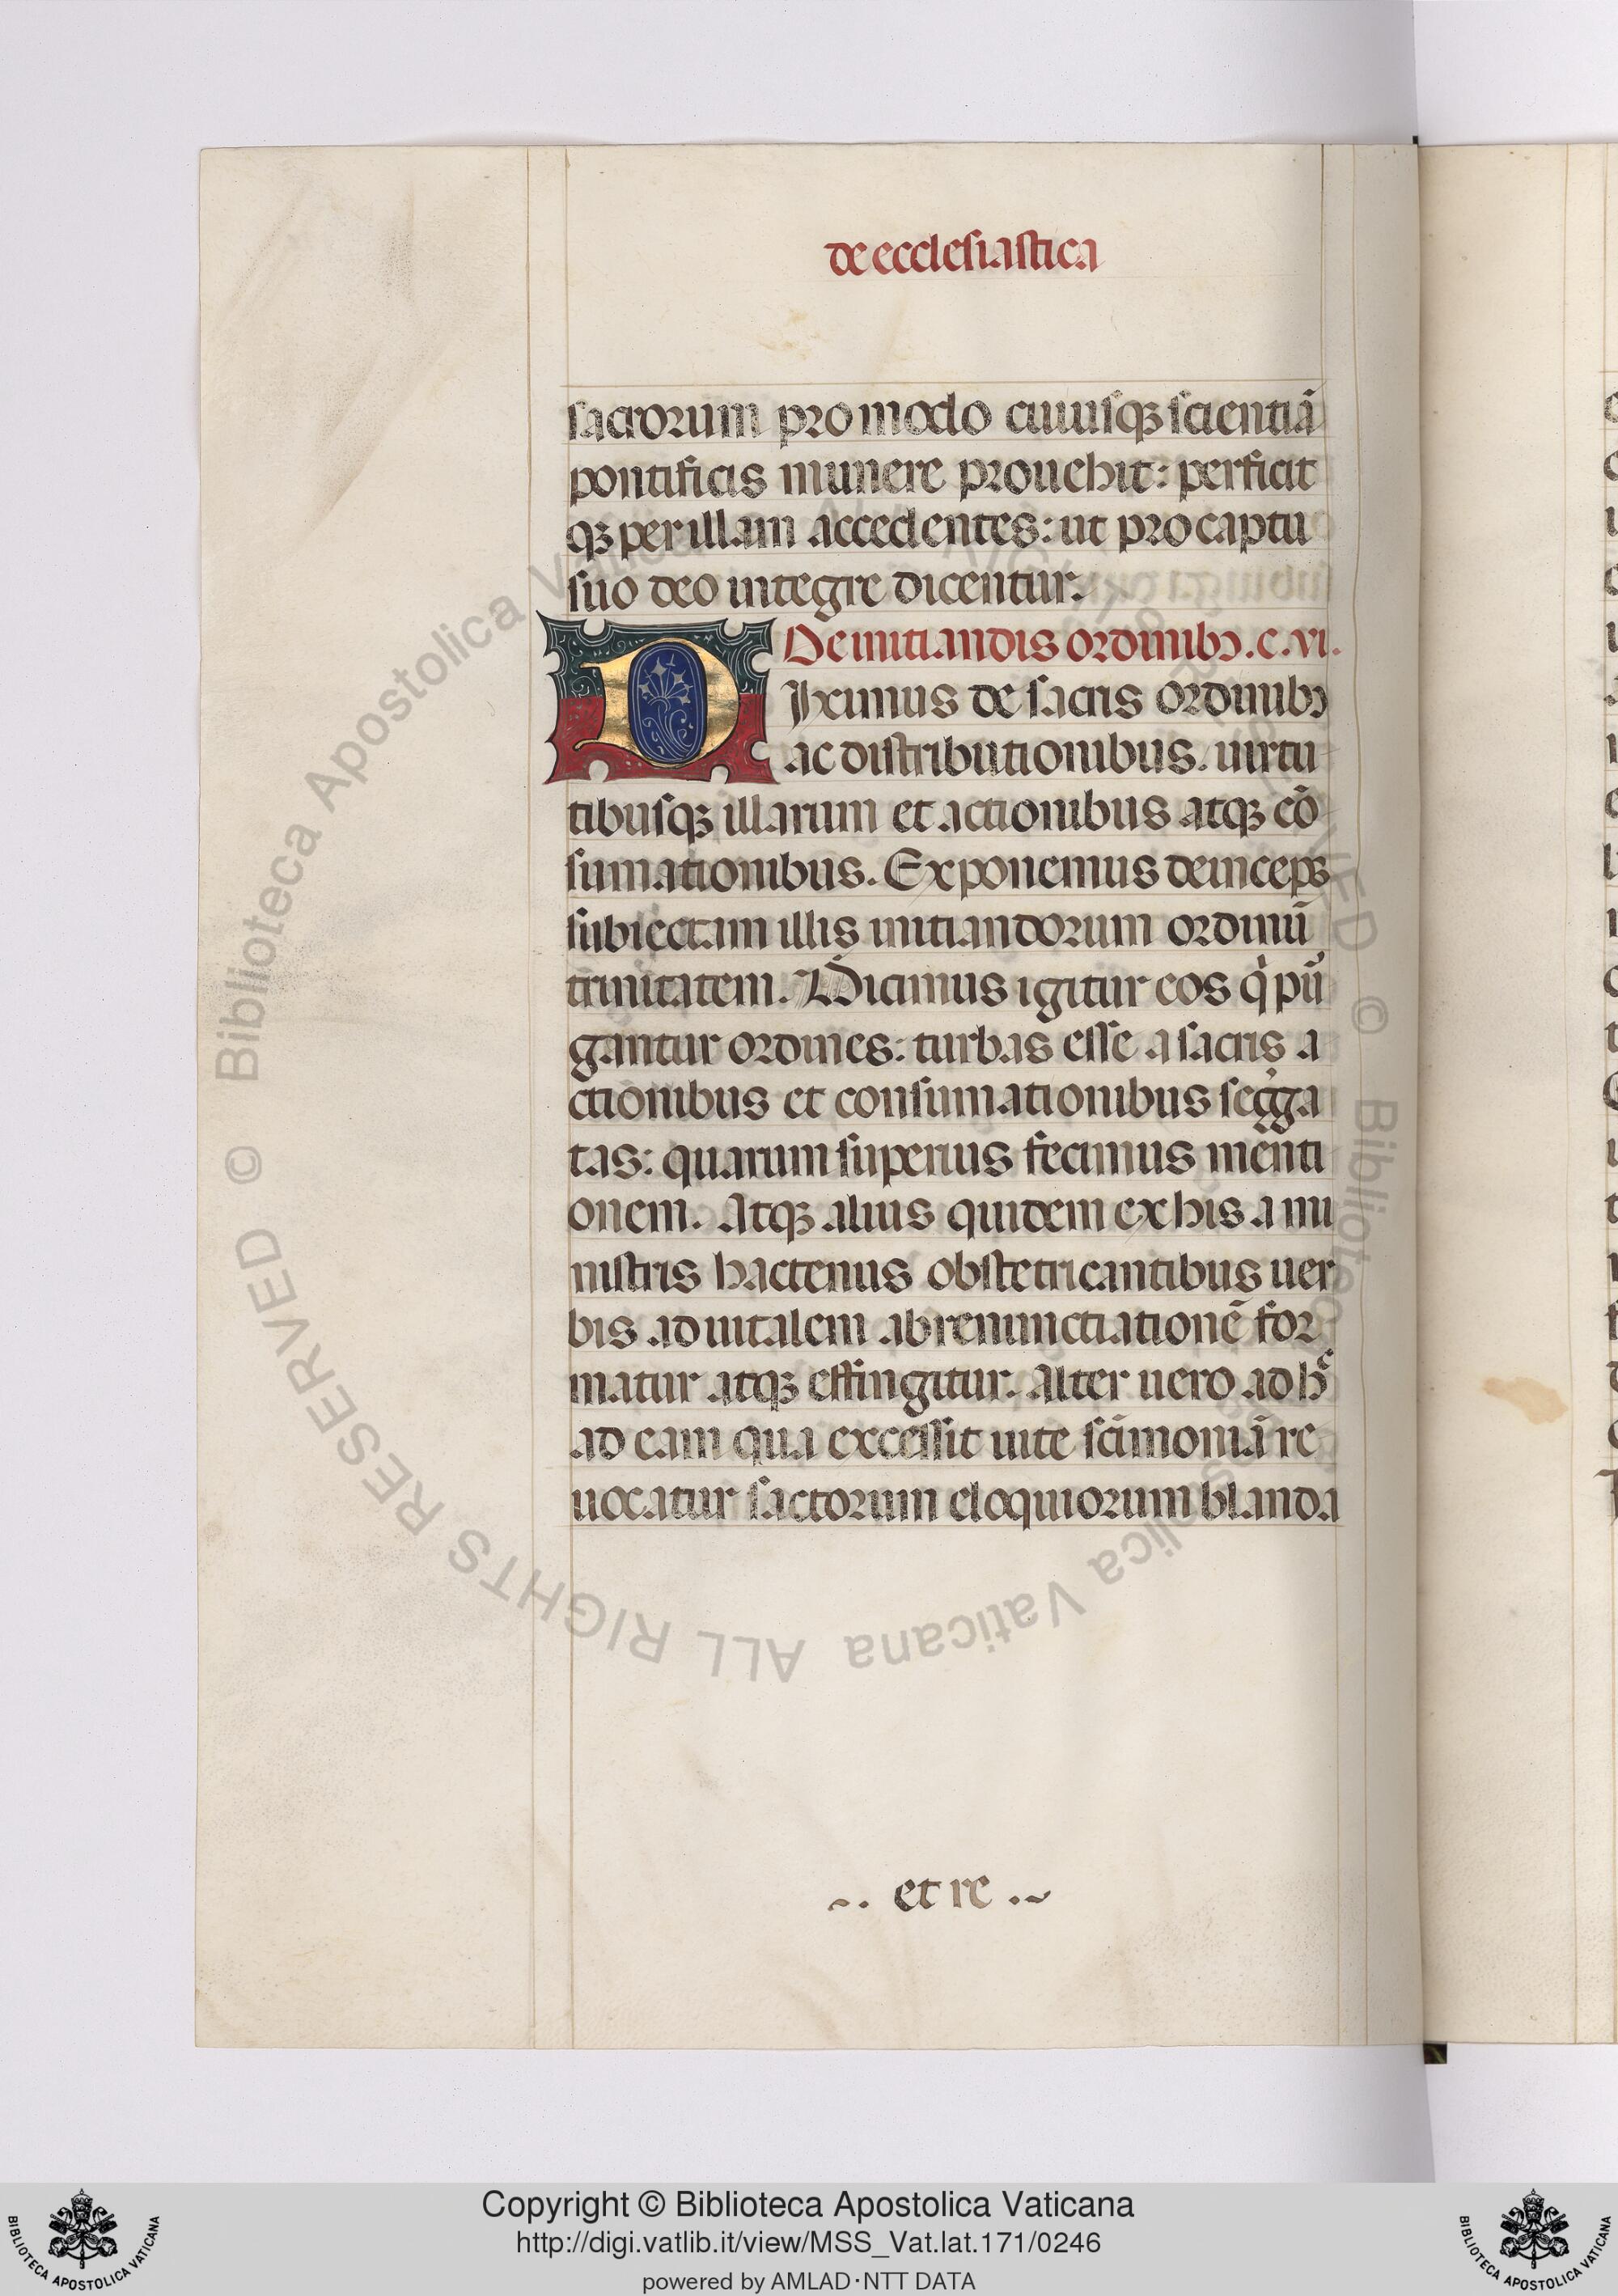 de ecclesiastica
sacrorum pro modo cuiusqꝫ scientiā
pontificis munere prouehit: perficit
qꝫ per illam accedentes: ut pro captu
suo deo integre dicentur.
De initiandis ordinibꝫ. c. vi.
Diximus de sacris ordinibꝫ
ac distributionibus. uirtu
tibusqꝫ illarum et actionibus atqꝫ cō
sumationibus. Exponemus deinceps
subiectam illis initiandorum ordinū
trinitatem. Dicimus igitur eos q̇ pur̄
gantur ordines: turbas esse a sacris a
ctionibus et consumationibus segͥga
tas: quarum superius fecimus menti
onem. Atqꝫ alius quidem ex his a mi
nistris hactenus obstetricantibus uer
bis ad uitalem abrenunctiationē for
matur atqꝫ effingitur. Alter uero ad hᶜ
ad eam qua excessit uite scīmoniā re
uocatur sactorum eloquiorum blanda
~. et re .~
Copyright © Biblioteca Apostolica Vaticana
http://digi.vatlib.it/view/MSS_Vat.lat.171/0246
powered by AMLAD·NTT DATA
BIBLIOTECA APOSTOLICA VATICANA
BIBLIOTECA APOSTOLICA VATICANA
© Biblioteca Apostolica Vaticana ALL RIGHTS RESERVED